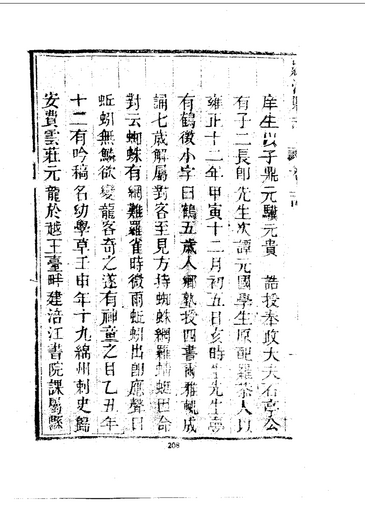 庠生以子鼎元驥元貴 誥授奉政大夫石亭公
有子二長即先生次譚元國學生原配羅恭人以
雍正十二年甲寅十二月初五日亥時生先生夢
有鶴徵小字曰鶴五歲入鄉塾授四書爾雅輒成
誦七歲解屬對客至見方持蜘蛛網羅蜻蜓因命
對云蜘蛛有網難羅雀時微雨蚯蚓出即應聲曰
蚯蚓無鱗欲變龍客奇之遂有神童之目乙丑年
十二有吟稿名幼學草壬申年十九綿州刺史歸
安費雲莊元龍於越王臺畔建涪江書院課屬縣
208